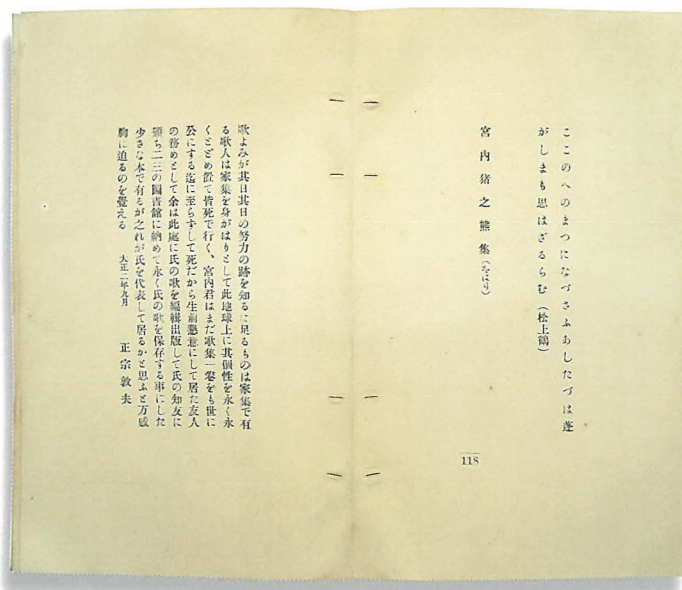 ここのへのまつになづさふあしたづは蓬
がしまも思はざるらむ（松上鶴）
宮内猪之熊集（をはり）
118
歌よみが其日其日の努力の跡を知るに足るものは家集で有
る歌人は家集を身がはりとして此地球上に其個性を永く永
くとどめ置て皆死で行く、宮内君はまだ歌集一巻をも世に
公にする迄に至らずして死だから生前懇意にして居た友人
の務めとして余は此處に氏の歌を編輯出版して氏の知友に
頒ち二三の圖書館に納めて永く氏の歌を保存する事にした
少さな本で有るが之れが氏を代表して居るかと思ふと万感
胸に迫るのを覺える 大正二年九月 正宗敦夫